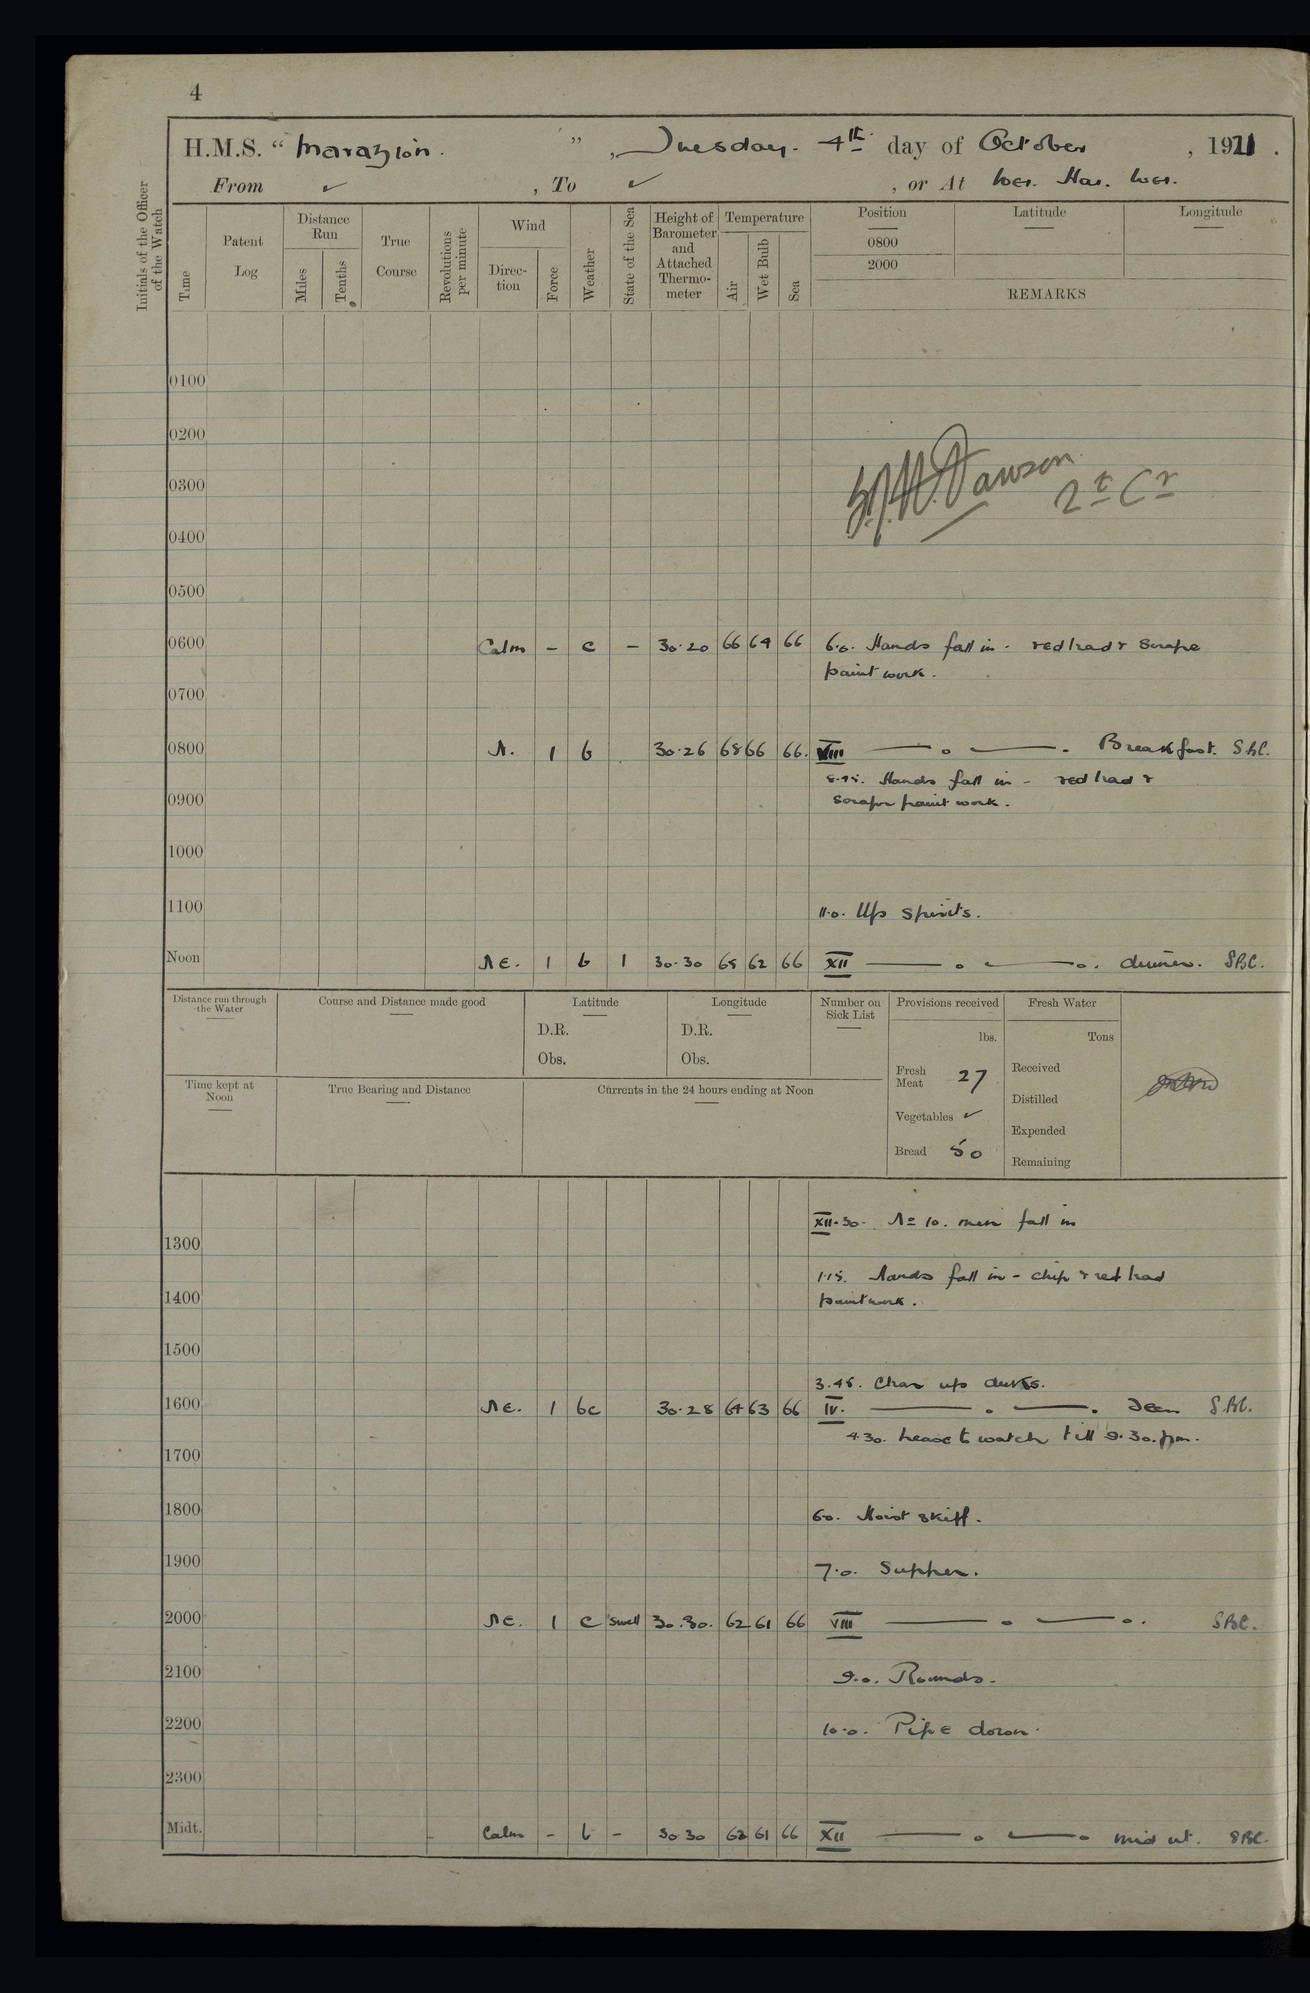 4
H.M.S. “ Marazion. ” , Tuesday. 4th day of October , 1921 .
From ✓ , To ✓ , or At Wei. Hai. Wei.
Initials of the Officer of the Watch
Time
Patent Log
Distance Run
Miles
Tenths
True Course
Revolutions per minute
Wind
Direc-tion
Force
Weather
State of the Sea
Height of Barometer and Attached Thermo-meter
Temperature
Air
Wet Bulb
Sea
Position
0800
2000
Latitude
Longitude
REMARKS
0100
0200
0300
Dawson
Lt Cr
0400
0500
0600 Calm - c - 30.20 66 64 66 6.0. Hands fall in - red lead & scrape
paint work.
0700
0800 N. 1 b 30.26 68 66 66. VIII Breakfast. SBC.
8.45. Hands fall in - red lead &
0900 scrape paint work.
1000
1100 11.0. Up spirits.
Noon NE. 1 b 1 30.30 68 62 66 XII dinner. SBC.
Distance run through the Water
Course and Distance made good
Latitude
D.R.
Obs.
Longitude
D.R.
Obs.
Number on Sick List
Provisions received
lbs.
Fresh Meat 27
Vegetables ✓
Bread 50
Fresh Water
Tons
Received
Distilled
Expended
Remaining
Time kept at Noon
True Bearing and Distance
Currents in the 24 hours ending at Noon
XII.30. No 10. men fall in
1300
1.15. Hands fall in - chip & red lead
1400 paintwork.
1500
3.45. Clear up decks.
1600 NE. 1 bc 30.28 64 63 66 IV. SBC.
4.30. Leave to watch till 9.30.pm.
1700
1800 6.0. Hoist skiff.
1900 7.0. Supper.
2000 NE. 1 c Swell 30.30. 62 61 66 VIII SBC.
2100 9.0. Rounds.
2200 10.0. Pipe down.
2300
Midt. Calm - b - 30.30 62 61 66 XII mid nt. SBC.